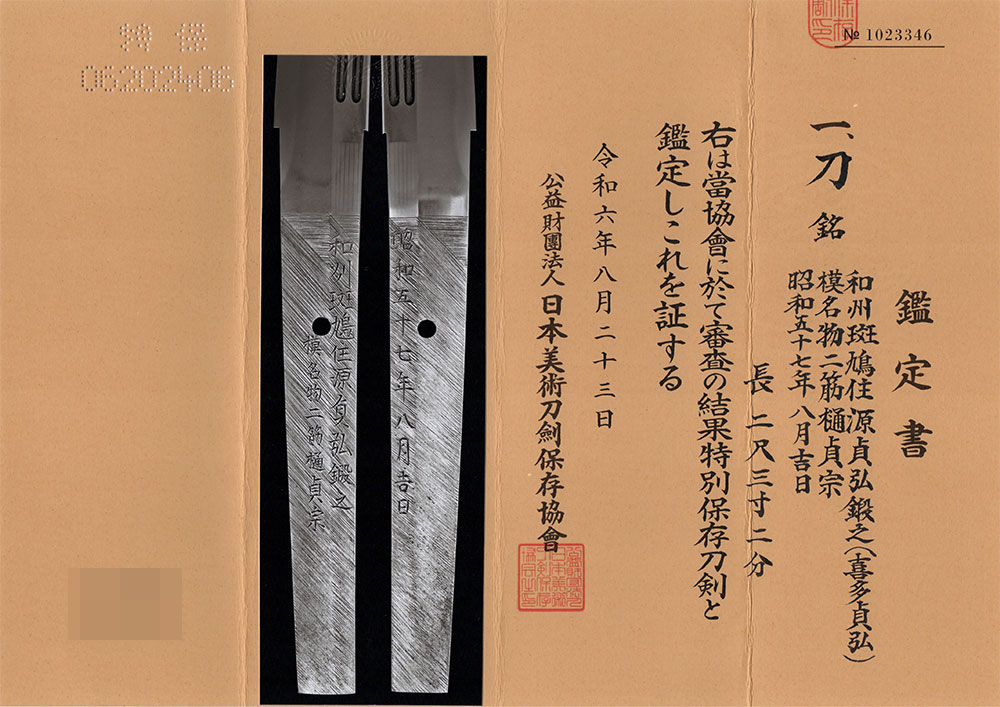 № 1023346
鑑定書
一、刀 銘
和州斑鳩住源貞弘鍛之(喜多貞弘)
模名物二筋樋貞宗
昭和五十七年八月吉日
長 二尺三寸二分
右は當協會に於て審査の結果特別保存刀剣と
鑑定しこれを証する
令和六年八月二十三日
公益財團法人 日本美術刀劍保存協會
昭和五十七年八月吉日
和州斑鳩住源貞弘鍛之
模名物二筋樋貞宗
特保
06202406